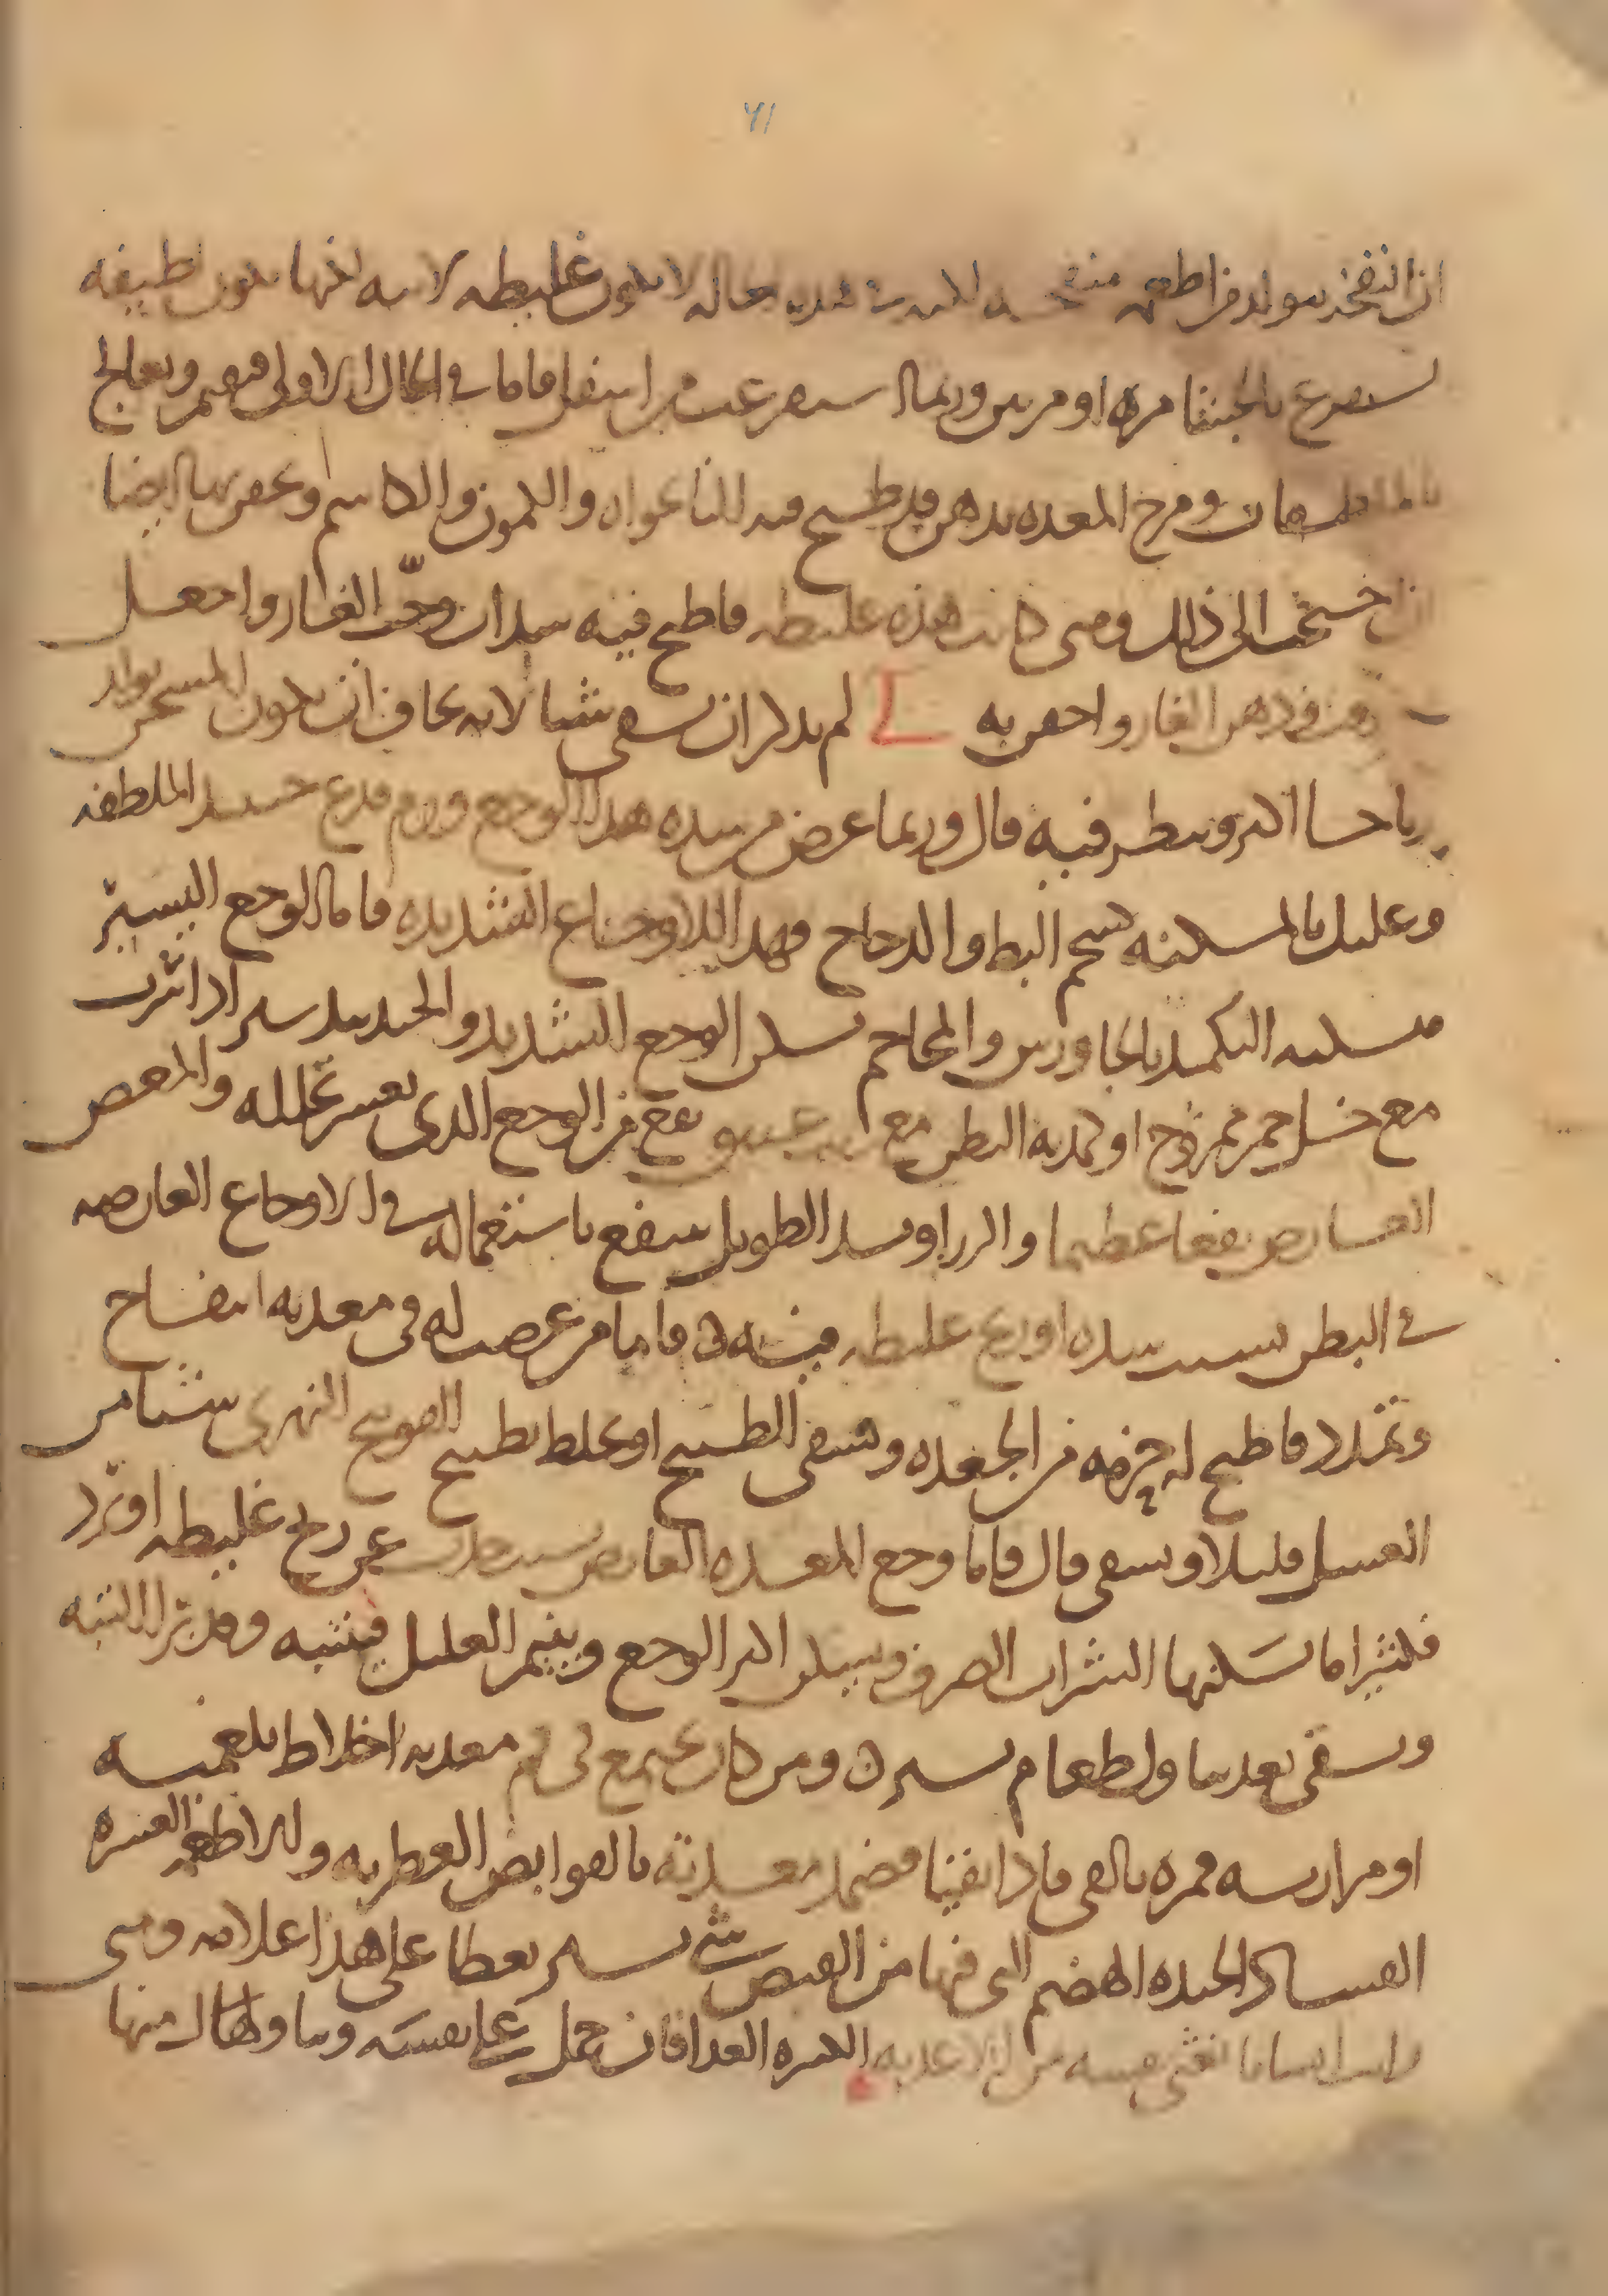 ٧١
ان النفخ يتولد من اطعمه منفخه لانه لا يكون غليظه لانه لكنها يكون لطيفه
تستفرغ بالجشا مره او مرتين وربما استفرغت من اسفل فاما في الحال الاولى فيقيم ويعالج
بالملطفات ومرخ المعده بدهن قد طبخ فيه النانخواه والكمون والكاشم ويحقن بها ايضا
ان احتجت الى ذلك ومتى كانت هذه غليظه فاطبخ فيه سذاب وحب الغار واجعل
دهنه دهن الغار واحقن به لى لم يذكر ان يسقى شيا لانه يخاف ان يكون المسخن يولد
رياحا اكثر وينظر فيه قال وربما عرض من شده هذا الوجع ورم فدع حينئذ الملطفه
وعليك بالمسكنه شحم البط والدجاج فهذا للاوجاع الشديده فاما الوجع اليسير
فيسكنه التكميد بالجاورس والمحاجم يسكن الوجع الشديد والجندبيدستر اذا شرب
مع خل خمر ممزوج او كمد به البطن مع زيت عتيق نفع من الوجع الذي يعسر تحلله والمغص
العارض نفعا عظيما والزراوند الطويل ينفع باستعماله في الاوجاع العارضه
في البطن بسبب سده او ريح غليظه فينبه ق فاما من عرض له في معدته انتفاخ
وتمدد فاطبخ له حزمه من الجعده ويسقى الطبيخ او يخلط بطبيخ الفوتنج النهري شيا من
العسل قليلا ويسقى قال فاما وجع المعده العارض بسبب عن ريح غليظه او برد
فكثيرا ما يسكنها الشراب الصرف ويسكن اكثر الوجع وينيم العليل فينتبه وقد برا البته
ويسقى بعد تناول طعام يسير ق ومن كان يجتمع في فم معدته اخلاط بلغميه
او مراريه فمره بالقي فاذا نقيتها فضمد معدته بالقوابض العطريه وله الاطعمه العسره
الفساد الجيده الهضم التي فيها من القبض شي يسير يعطا على هذا علامه ومتى
رايت انسانا تغثى نفسه من الاغذيه العدا فان حمل على نفسه وتناول منها